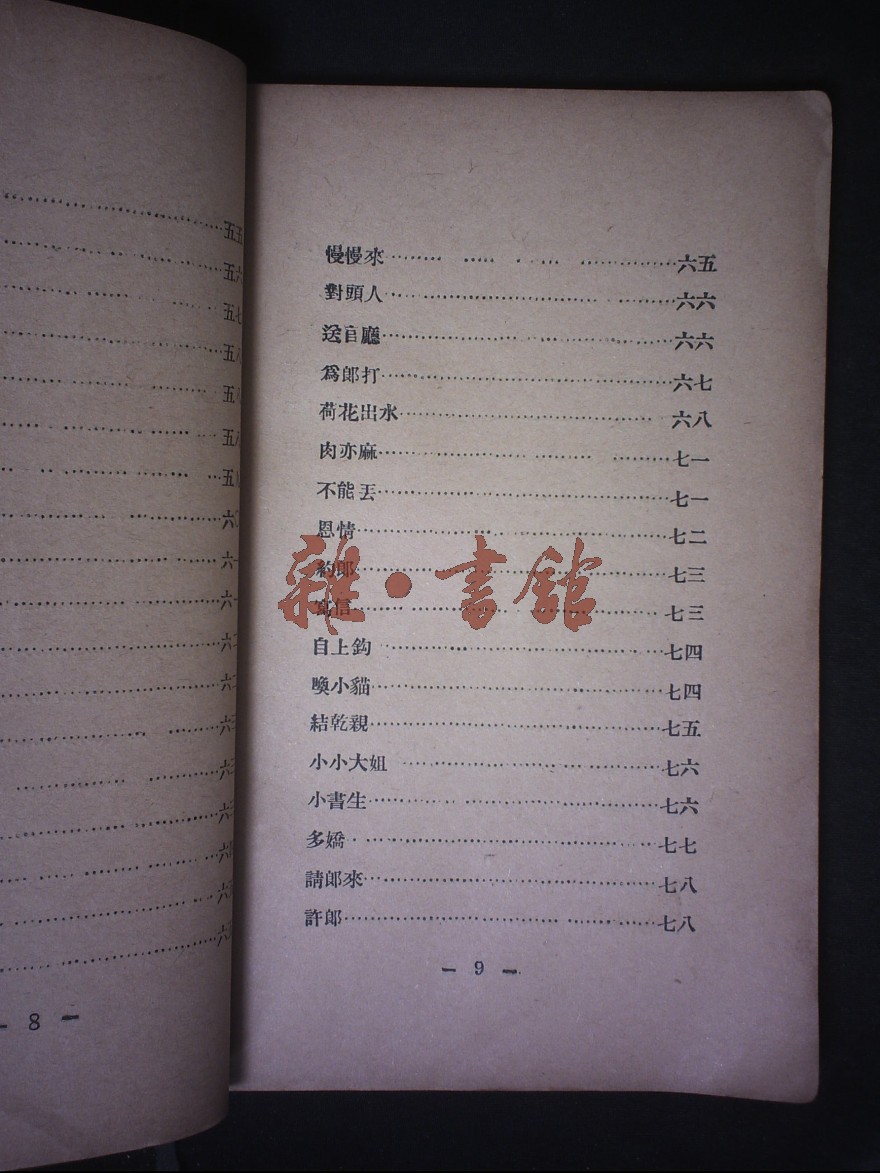 五五
五六
五七
五八
五八
五八
五八
六〇
六一
六一
六二
六二
六三
六三
- 8 -
慢慢來…………六五
對頭人…………六六
送官廳…………六六
爲郎打…………六七
荷花出水…………六八
肉亦麻…………七一
不能丟…………七一
恩情…………七二
約郎…………七三
寫信…………七三
自上鈎…………七四
喚小貓…………七四
結乾親…………七五
小小大姐…………七六
小書生…………七六
多嬌…………七七
請郎來…………七八
許郎…………七八
- 9 -
雜·書館